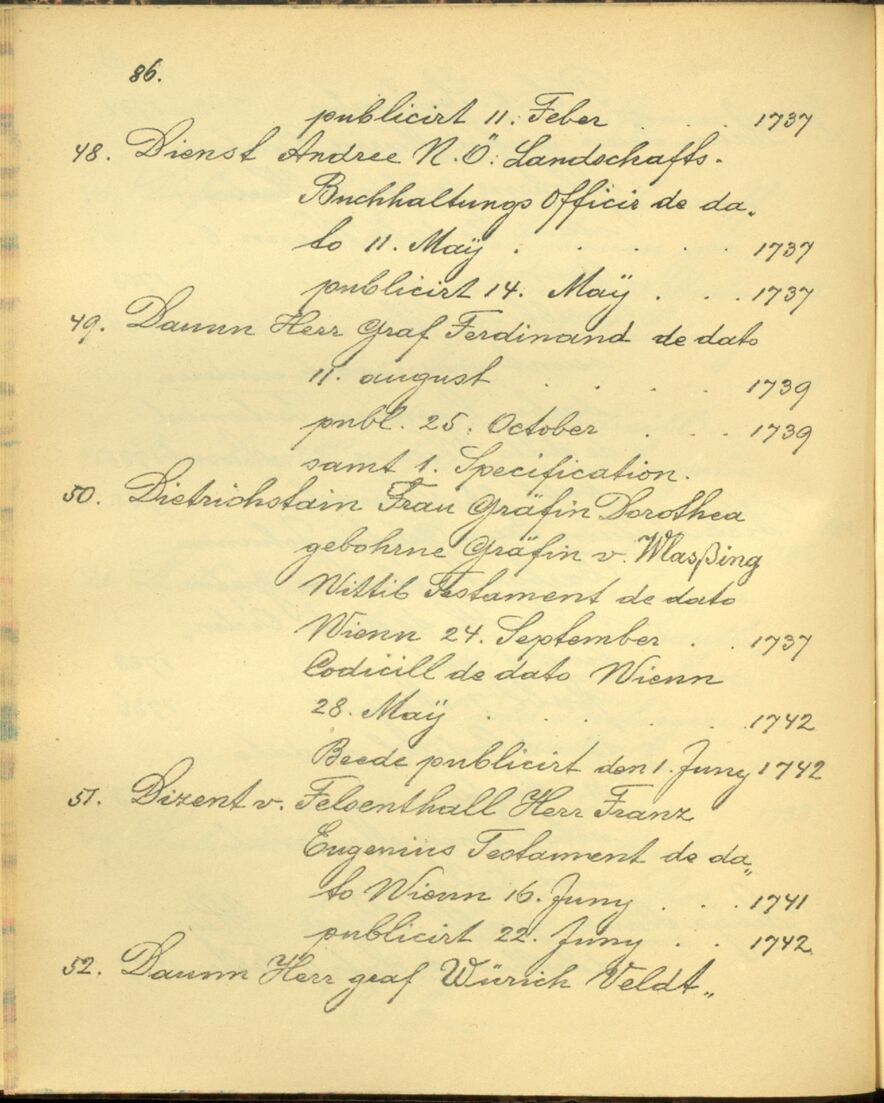 86.
publicirt 11. Feber . . . 1737
48. Dienst Andree N. Ö. Landschafts-
Buchhaltungs Officir de da„
to 11. Maÿ . . . . 1737
publicirt 14. Maÿ . . . 1737
49. Daunn Herr Graf Ferdinand de dato
11. august . . . . 1739
publ. 25. October . . . 1739
samt 1. Specification.
50. Dietrichstain Frau Gräfin Dorothea
gebohrne Gräfin v. Wlasßing
Wittib Testament de dato
Wienn 24. September . . 1737
Codicill de dato Wienn
28. Maÿ . . . . . 1742
Beede publicirt den 1. Juny 1742
51. Dizent v. Felsenthall Herr Franz
Eugenius Testament de da„
to Wienn 16. Juny . . . 1741
publicirt 22. Juny . . 1742.
52. Daunn Herr graf Würich Veldt„